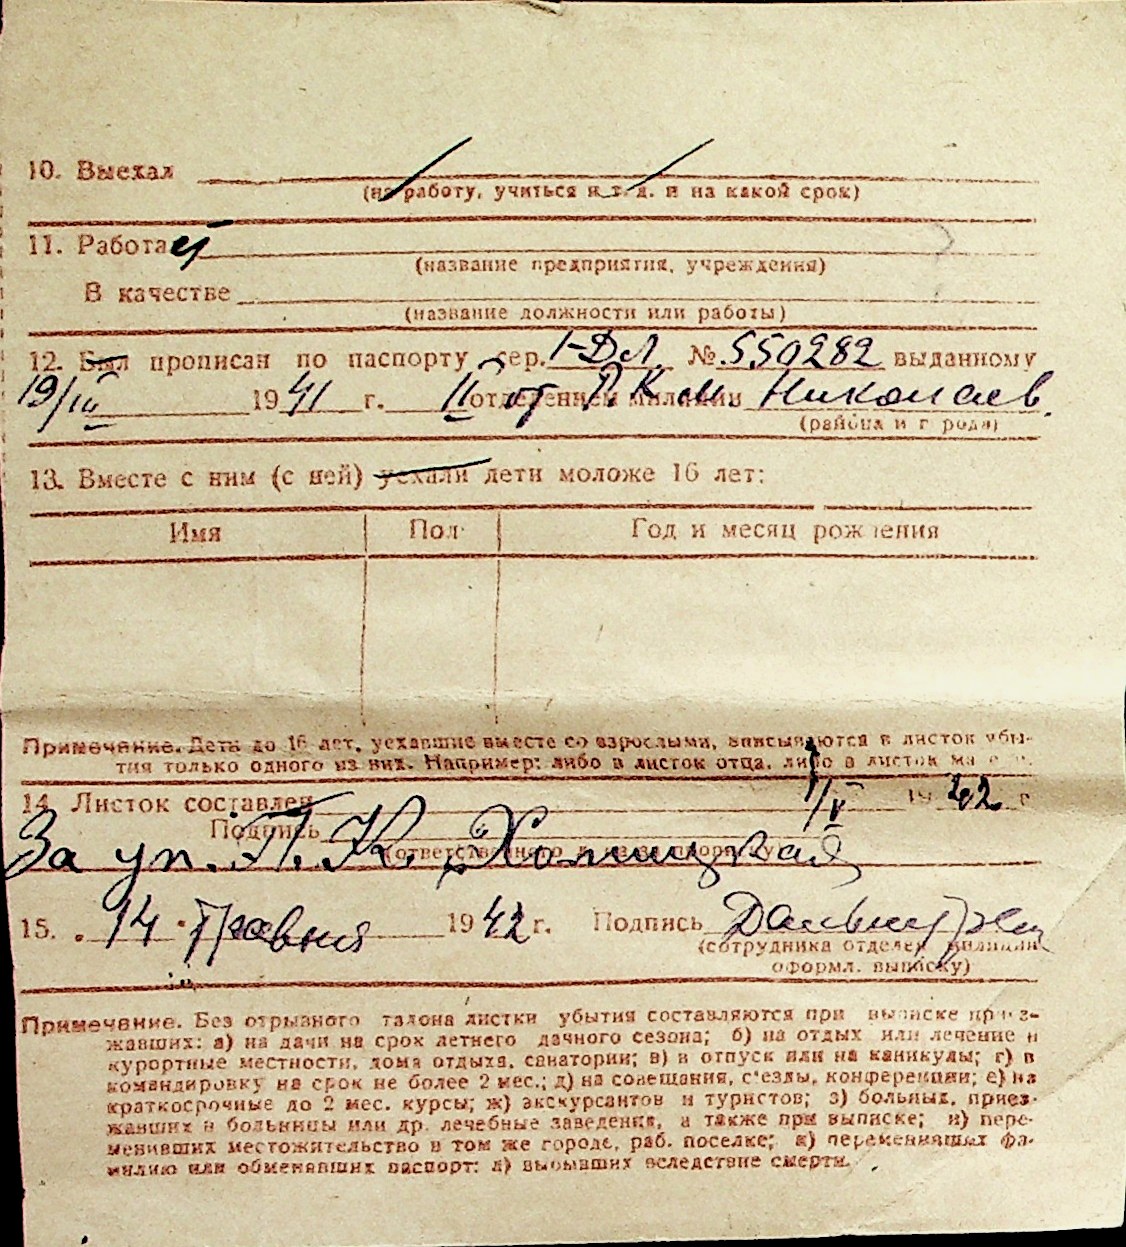 10. Выехал
(на работу, учиться и т. д. и на какой срок)
11. Работает
(название предприятия, учреждения)
В качестве
(название должности или работы)
12. Был прописан по паспорту сер. 1-ДЛ № 550282 выданному
19/IV 1941 г. II отделением милиции Р.К.М. Николаев.
(района и города)
13. Вместе с ним (с ней) уехали дети моложе 16 лет:
Имя Пол Год и месяц рождения
Примечание. Дети до 16 лет, уехавшие вместе со взрослыми, вписываются в листок убы-
тия только одного из них. Например: либо в листок отца, либо в листок ма
14. Листок составлен 1/V 1942 г
Подпись
За уп. П. К. Хомицкая
(ответственного
15. 14 Травня 1942 г. Подпись
(сотрудника отделен. милиции
оформл. выписку)
Примечание. Без отрывного талона листки убытия составляются при выписке приез-
жавших: а) на дачи на срок летнего дачного сезона; б) на отдых или лечение в
курортные местности, дома отдыха, санатории; в) в отпуск или на каникулы; г) в
командировку на срок не более 2 мес.; д) на совещания, с'езды, конференции; е) на
краткосрочные до 2 мес. курсы; ж) экскурсантов и туристов; з) больных, приез-
жавших в больницы или др. лечебные заведения, а также при выписке; и) пере-
менивших местожительство в том же городе, раб. поселке; к) переменивших фа-
милию или обменявших паспорт; л) выбывших вследствие смерти.